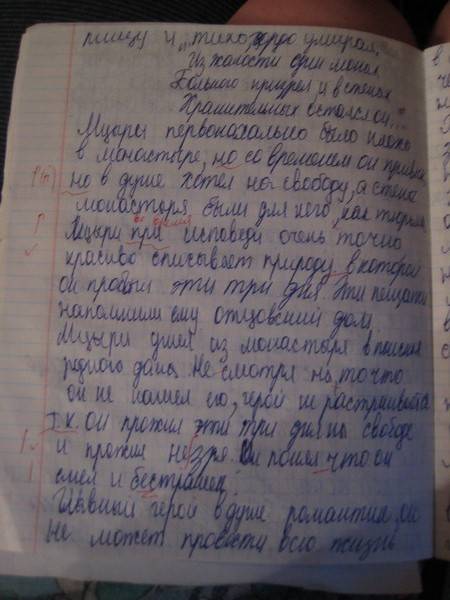 пищу и „тихо, гордо умирал,
Из жалости один монах
Больного призрел и в стенах
Хранительных остался он..."
Мцыри первоначально было плохо
в монастыре, но со временем он привык,
но в душе хотел на свободу, а стены
монастыря были для него, как тюрьма.
Мцыри при во время исповеди очень точно
красиво описывает природу в которой
он провёл эти три дня. Эти пещаты
напомнили ему отцовский дом.
Мцыри ушел из монастыря в поисках
родного дома. Не смотря на то что
он не нашел его, герой не расстраивался
т.к. он прожил эти три дня на свободе
и прожил не зря. Он понял что он
смел и бесстрашен.
Главный герой в душе романтик, он
не может провести всю жизнь